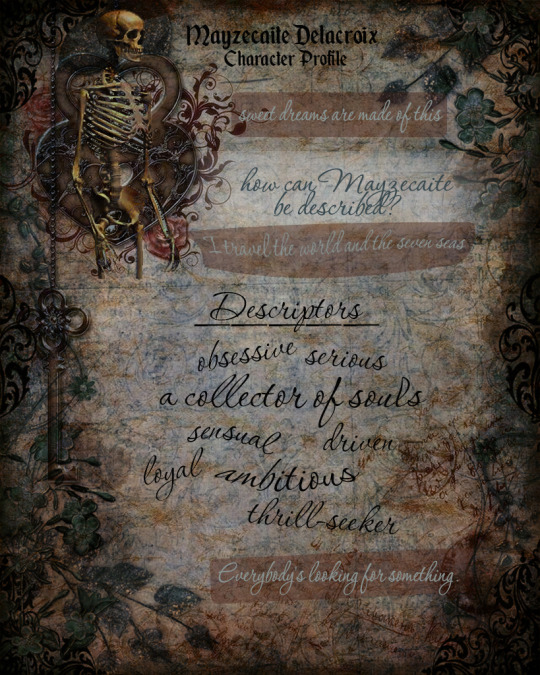 Mayzecaite Delacroix
Character Profile
sweet dreams are made of this
how can Mayzecaite
be described?
I travel the world and the seven seas
Descriptors
obsessive serious
a collector of souls
sensual driven
loyal ambitious
thrill-seeker
Everybody's looking for something.